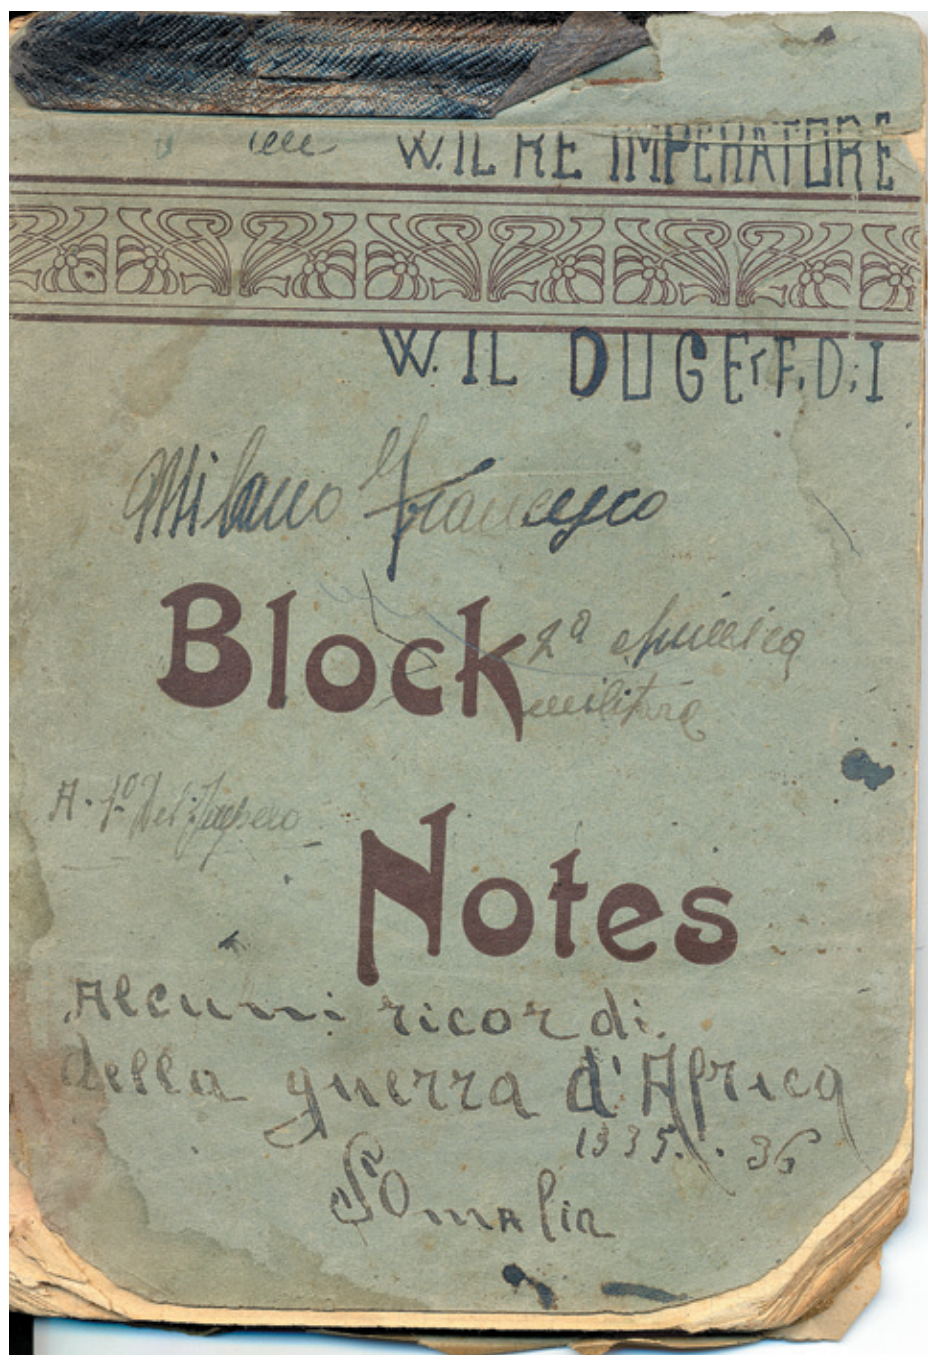 W. IL RE IMPERATORE
W. IL DUCE
Milano Francesco
Block
2ª chimica
militare
Notes
Alcuni ricordi
della guerra d'Africa
1935. . 36
Somalia